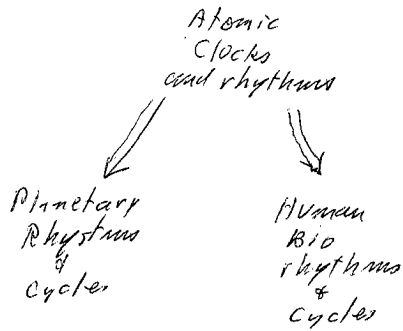 Atomic
Clocks
and rhythms
Planetary
Rhystms
&
Cycles
Human
Bio
rhythms
&
Cycles